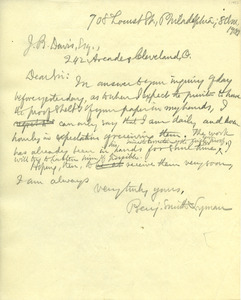 708 Locust St., Philadelphia, 8 Dec.,
J. B. Davis, Esq.,
242 Arcade, Cleveland, O.
Dear Sir: In answer to your inquiry of day
before yesterday, as to when I expect the printer to have
the proof sheets of your paper in my hands, I
can only say that I am daily, and even
hourly in expectation of receiving them. The work
has already been in hands for
will try to hasten him if possible.
Hoping, then, to receive them very soon,
I am always
Very truly yours,
Benj. Smith Lyman